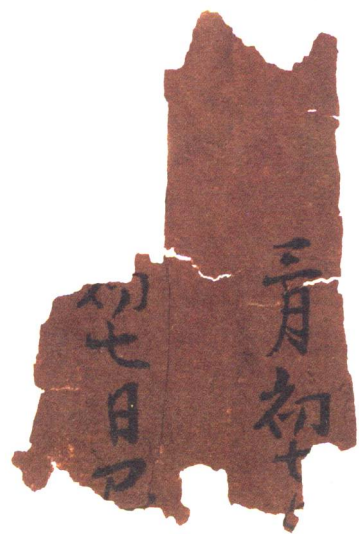 三月初七
初七日